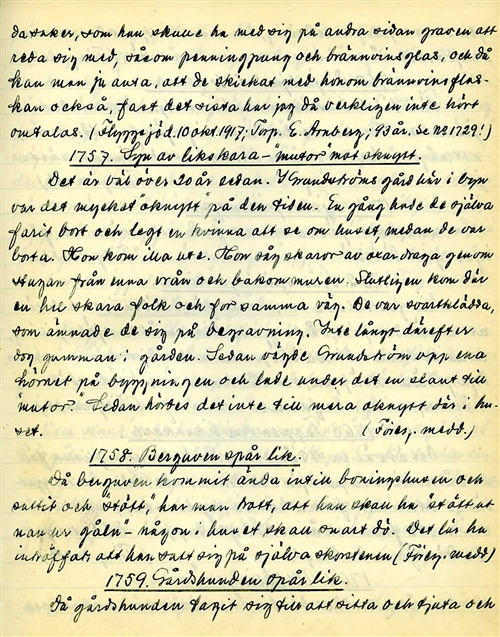 da saker, som han skulle ha med sig på andra sidan graven att
reda sig med, såsom penningpung och brännvinsglas, och då
kan man ju anta, att de skickat med honom brännvinsflas-
kan också, fast det sista har jag då verkligen inte hört
omtalas. (Flygge jöd. 10 okt. 1917; Torp. E. Arnberg; 93 år. Se No 1729!)
1757. Syn av likskara - "mutor" mot oknytt.
Det är väl över 20 år sedan. I Grundströms gård här i byn
var det mycket "oknytt" på den tiden. En gång hade de själva
farit bort och legt en kvinna att se om huset, medan de var
borta. Hon kom illa ute. Hon såg skaror av
stugan från ena vrån och bakom muren. Slutligen kom där
en hel skara folk och for samma väg. De var svartklädda,
som ämnade de sig på begravning. Inte långt därefter
dog gumman i gården. Sedan vägde Grundström upp ena
hörnet på byggningen och lade under det en slant till
"mutor." Sedan hördes det inte till mera oknytt där i hu-
set. (Föreg. medd.)
1758. Berguven spår lik.
Då berguven kommit ända intill boningshusen och
suttit och "stött," har man trott, att han skall ha "stött ut
nan ur gåln" - någon i huset skall snart dö. Det lär ha
inträffat, att han satt sig på själva skorstenen (Föreg. medd)
1759. Gårdshunden spår lik.
Då gårdshunden tagit sig till att sitta och tjuta och